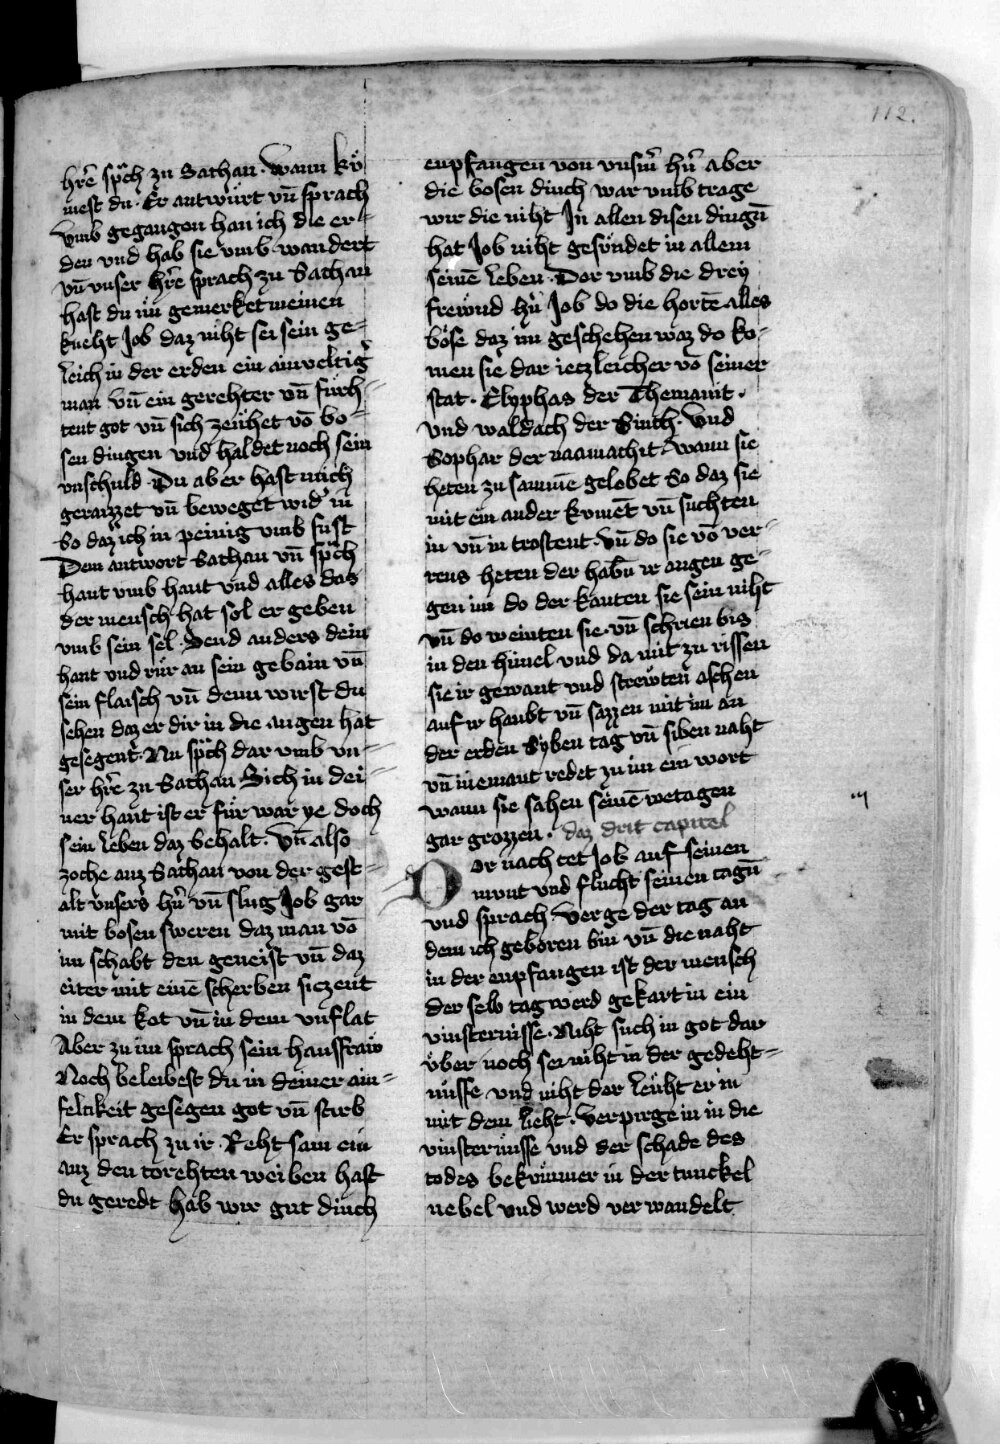 112.
hr̄e sp̄ch zu Sathan · Wann kü
mest du · Er antwürt vn̄ sprach
vmb gegangen han ich die er-
den vnd hab sie vmb wandert
vn̄ vnser hr̄e sprach zu Sathan
hast du nü gemerket meinen
kneht Job daz niht sei sein ge-
leich in der erden ein ainveltiḡ
man vn̄ ein gerehter vn̄ fürh-
tent got vn̄ sich zeuhet vō bo-
sen dingen vnd haldet noch sein
vnschuld · Du aber hast mich
geraizzet vn̄ beweget wid' in
So daz ich in peinig vmb sust
Dem antwort Sathan vn̄ sp̄ch
haut vmb haut vnd alles das
der mensch hat sol er geben
vmb sein sel · Send anders dein
hant vnd rür an sein gebain vn̄
sein flaisch vn̄ denn wirst du
sehen daz er dir in die augen hat
gesegent · Nu sp̄ch dar vmb vn-
ser hr̄e zu Sathan Sich in dei-
ner hant ist er für war ye doch
sein leben daz behalt · Vn̄ also
zoche auz Sathan von der gest-
alt vnsers hn̄ vn̄ slug Job gar
mit bosen sweren daz man vō
im schabt den geneist vn̄ daz
eiter mit einē scherben siczent
in dem kot vn̄ in dem vnflat
Aber zu im sprach sein hausfraw
Noch beleibest du in deiner ain-
feltikeit gesegen got vn̄ stirb
Er sprach zu ir · Reht sam ein
auz den torehten weiben hast
du geredt hab wir gut dinch
enpfangen von vnsm̄ hn̄ aber
die bosen dinch war vmb trage
wir die niht In allen disen dingn̄
hat Job niht gesündet in allem
seinē leben · Dor vmb die drey
frewnd hn̄ Job do die hortē alles
böse daz im geschehen waz do ko-
men sie dar ieczleicher vō seiner
stat · Elyphas der Themanit ·
Vnd waldach der Sinth · Vnd
Sophar der naamachit · Wann sie
heten zu samme gelobet So daz sie
mit ein ander komēt vn̄ suchten
in vn̄ in trostent · Vn̄ do sie vō ver-
rens heten der habn̄ ir augen ge-
gen im do der kanten sie sein niht
vn̄ do weinten sie · vn̄ schrien bis
in den himel vnd da mit zu rissen
sie ir gewant vnd strewten aschen
auf ir haubt vn̄ sazzen mit im an
der erden Syben tag vn̄ siben naht
vn̄ niemant redet zu im ein wort
wann sie sahen seinē wetagen
gar grozzen · daz drit capitel
Dor nach tet Job auf seinen
munt vnd flucht seinen tagn̄
vnd sprach · Verge der tag an
dem ich geboren bin vn̄ die naht
in der enpfangen ist der mensch
der selb tag werd gekart in ein
vinsternisse · Niht such in got dar
über noch sei niht in der gedeht-
nüsse vnd niht der leuht er in
mit dem lieht · Verpirge in in die
vinsternüsse vnd der schade des
todes bekümmer in der tunckel
nebel vnd werd verwandelt